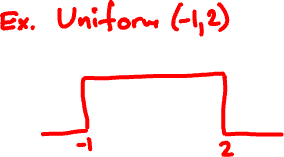 Ex. Uniform (-1,2)
-1 2